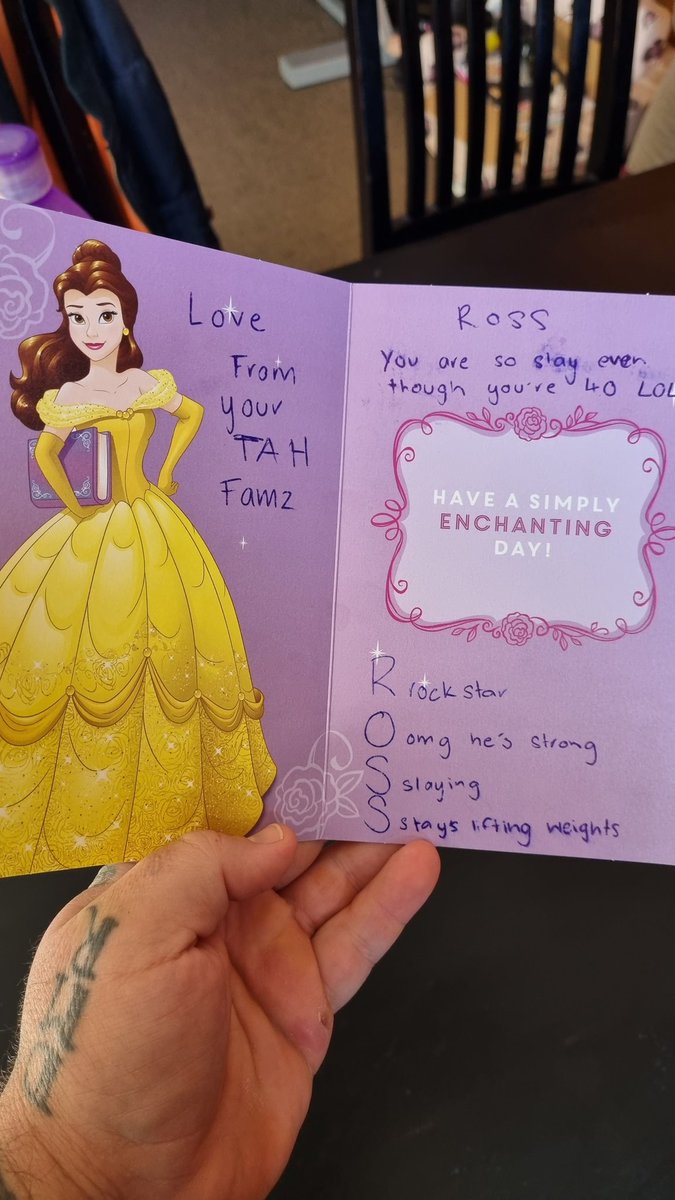 Love
From
your
TAH
Famz
ROSS
You are so slay even
though you're 40 LOL
HAVE A SIMPLY
ENCHANTING
DAY!
R rockstar
O omg he's strong
S slaying
S stays lifting weights